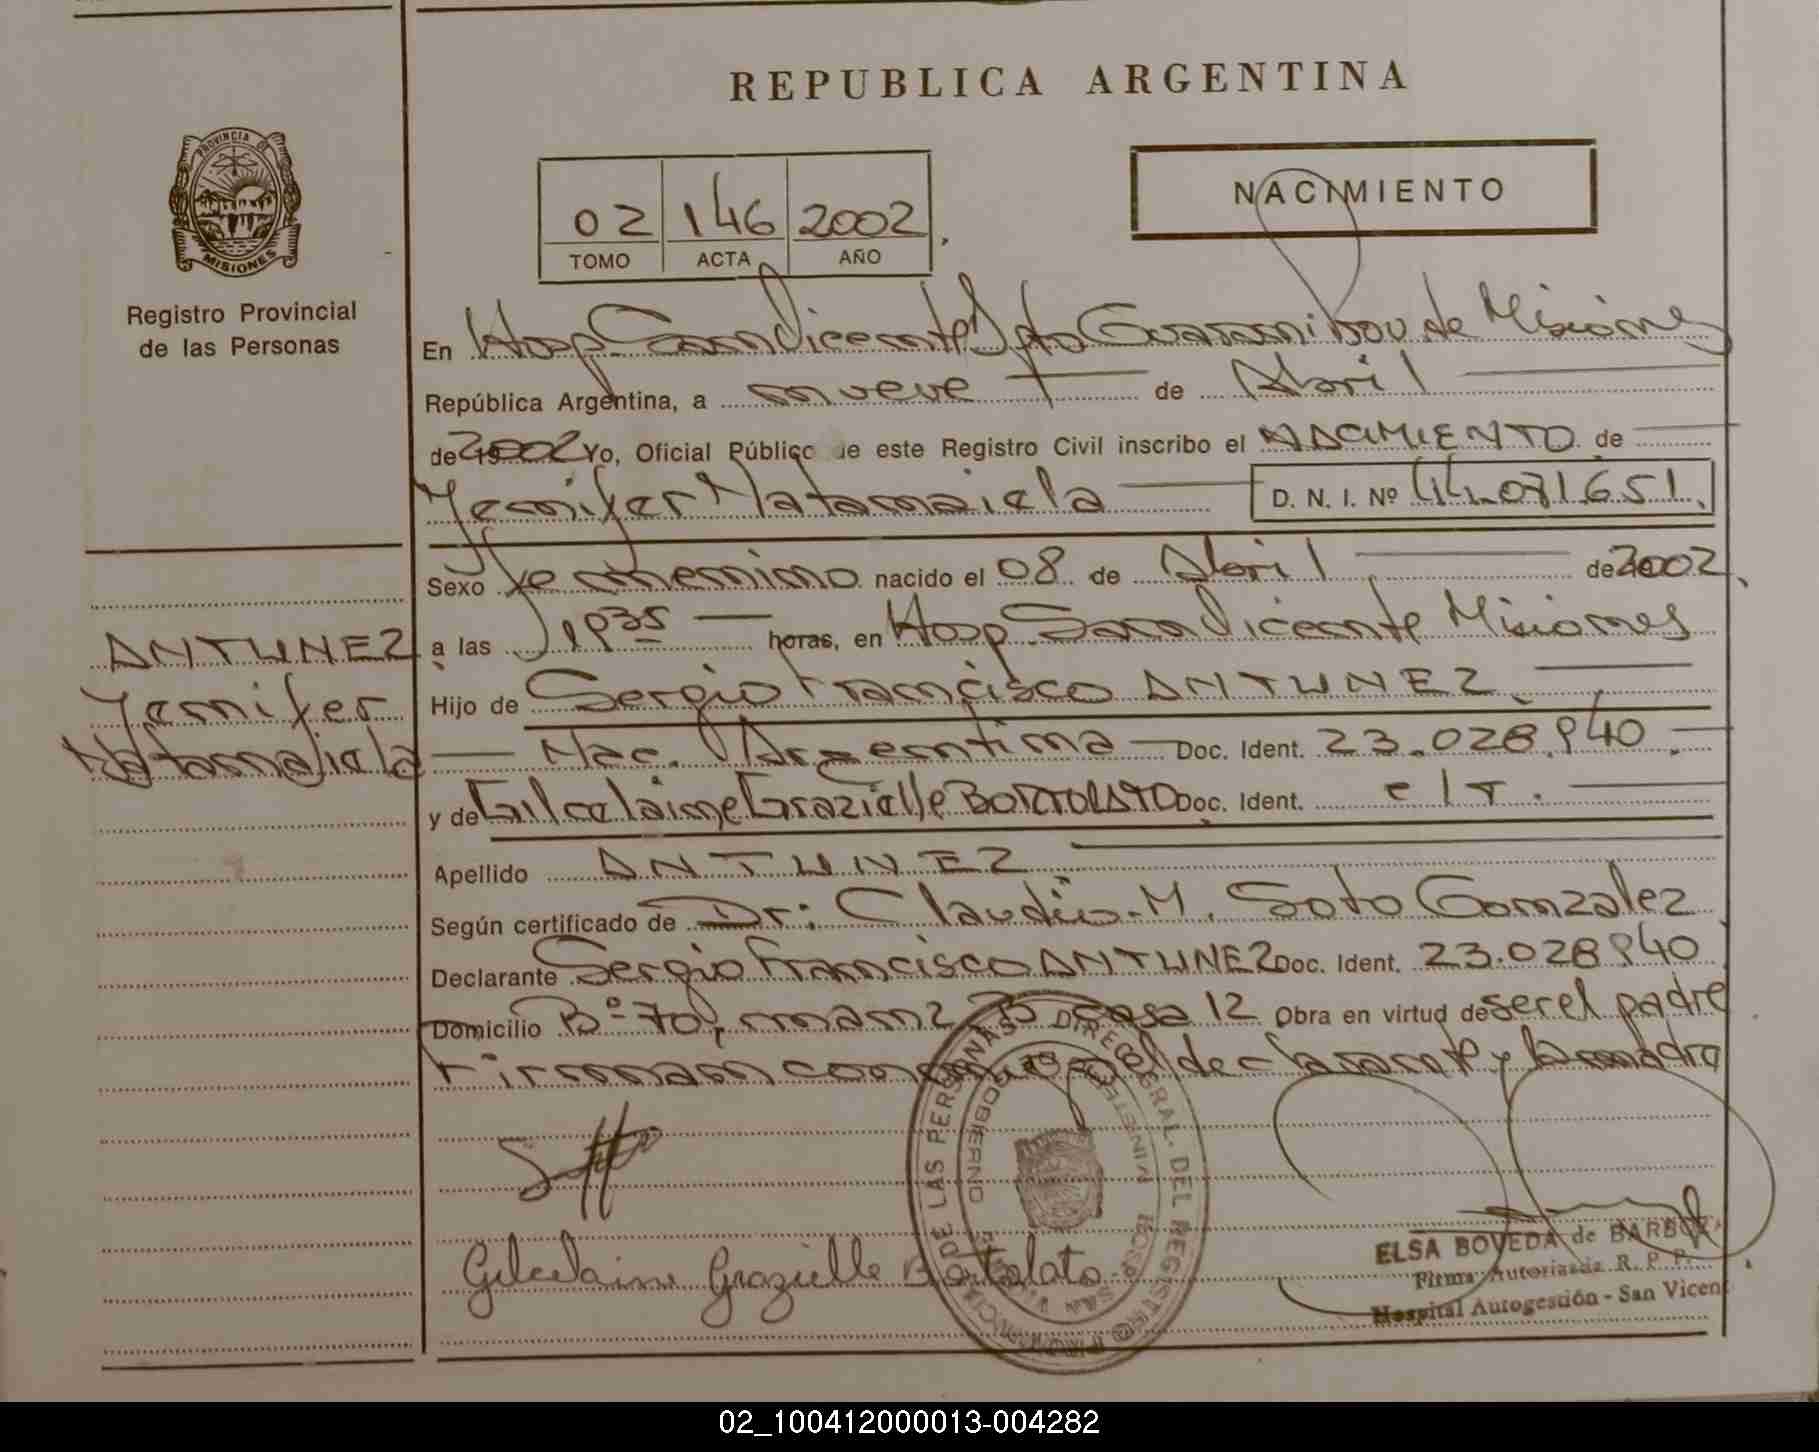 REPUBLICA ARGENTINA
PROVINCIA DE
MISIONES
Registro Provincial
de las Personas
02 146 2002
TOMO ACTA AÑO
NACIMIENTO
En Hosp San Vicente Dpto Guarani Prov de Misiones
República Argentina, a nueve de Abril
de 2002 Yo, Oficial Público de este Registro Civil inscribo el NACIMIENTO de
Yennifer Natanaiela D. N. I. Nº 44.071.651.
Sexo femenino nacido el 08 de Abril de 2002
a las 1935 horas, en Hosp San Vicente Misiones
Hijo de Sergio Francisco ANTUNEZ
Nac. Argentina Doc. Ident. 23.028.940
y de Gilcelaine Grazielle BORTOLATO Doc. Ident. C I T.
Apellido ANTUNEZ
Según certificado de Dr: Claudio M. Soto Gonzalez
Declarante Sergio Francisco ANTUNEZ Doc. Ident. 23.028.940
Domicilio Bº 70, manz B casa 12 Obra en virtud de ser el padre
Firman conmigo el declarante y la madre
ANTUNEZ
Yennifer
Natanaiela
Gilcelaine Grazielle Bortolato
DIREC. GRAL. DEL REGISTRO PROVINCIAL DE LAS PERSONAS
GOBIERNO
HOSP. SAN
ELSA BOVEDA de BARBOZA
Firma Autorizada R. P. P.
Hospital Autogestión - San Vicen
02_100412000013-004282